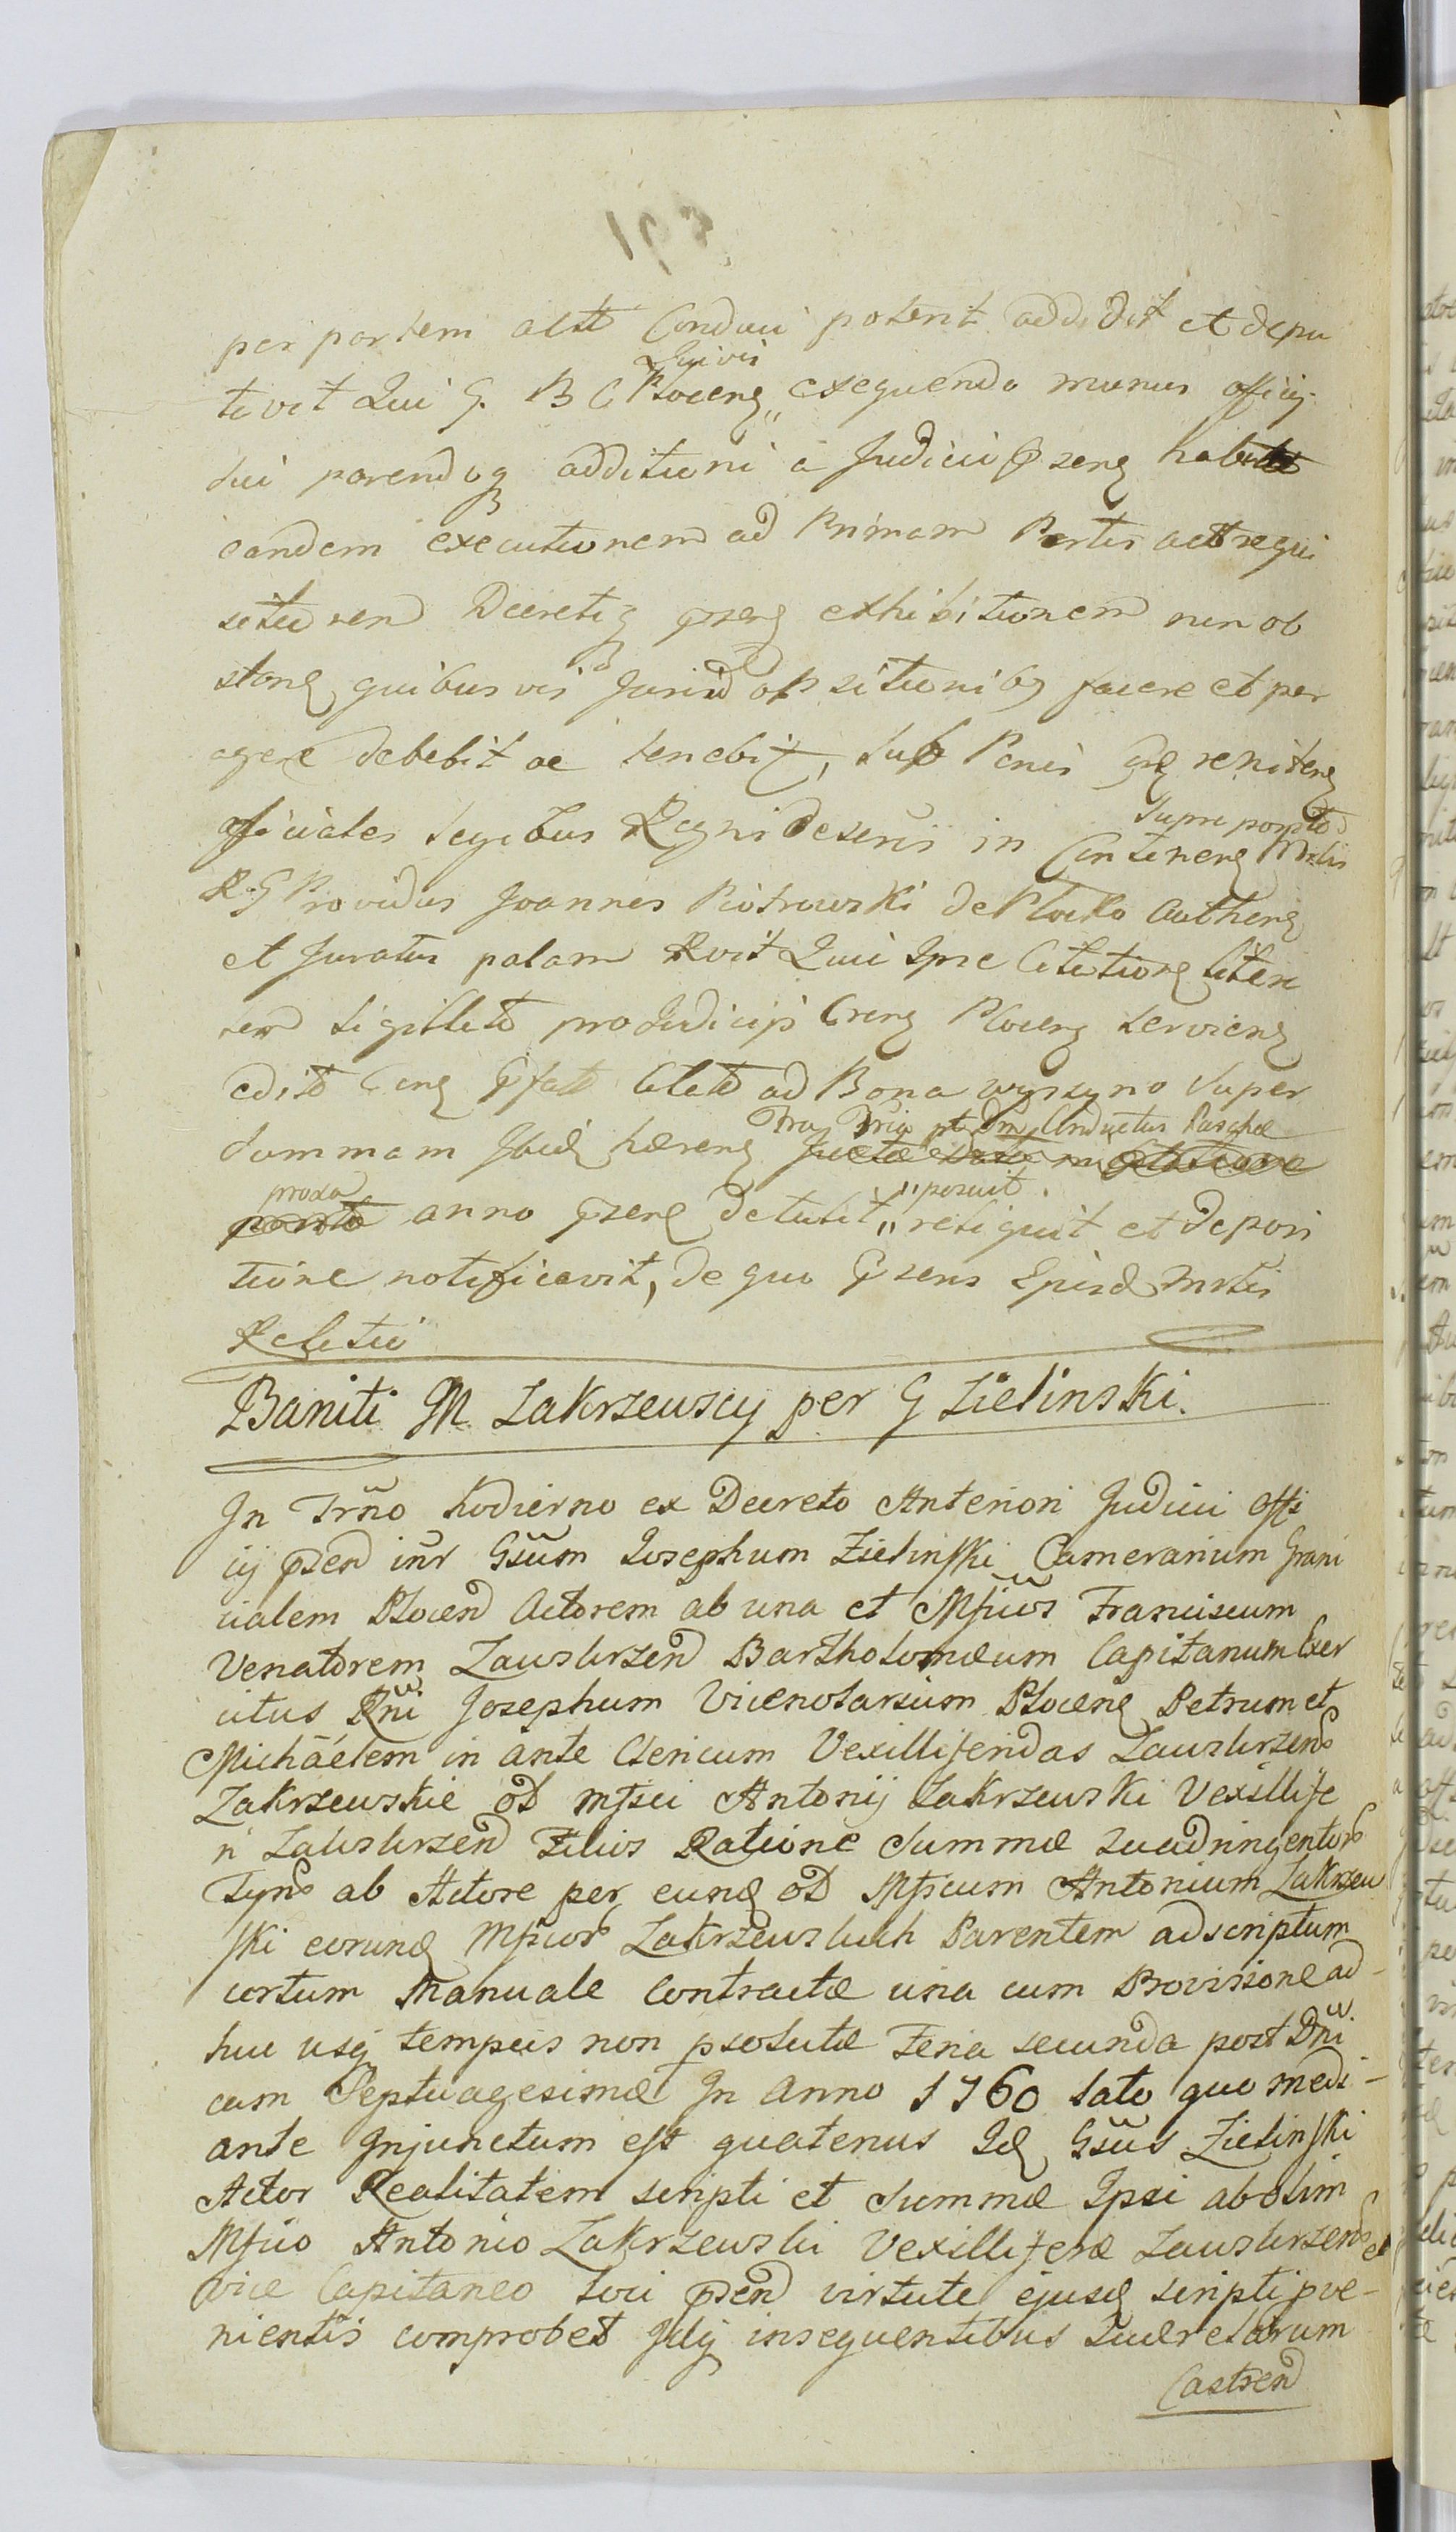 per partem actt Conduci poterit addidit et depu
tavit Qui G. B C Plocens Quivis exequendo munus officij
sui parendoq additioni a Judicii Pzens
eandem executionem ad Primam Partis act requi
sitionem Decretiq pzens exhibitionem non ob
stang quibusvis Jurid opsitionibg facere et per
agere debebit ac tenebit, sub Penis renitens
officiales legibus Regni descris in Contenens supra
R. G Providus Joannes Piotrowski de Plocko Authens
et Juratus palam Rvit Quii Ipse Citationes littera
sigillat pro Judicijs Crens Plocens serviens
edit Cens Pfatt Citat ad Bona wyszyno super
summam Ibid hærens Fra Dm Conductus Paschæ
proxa anno pzens detulit, posuit reliquit et deposi
tione notificavit, de quo Pzens Ejusd Mrlis
Relatio
Baniti M. Zakrzewscy per G Zielinski.
In Trño hodierno ex Decreto Anteriori Judici Offi
cij pzend intr Gsum Josephum Zielinski Camerarium Grani
cialem Plocend Actorem ab una et Mficos Franciscum
Venatorem Zawskrzend Bartholomæum Capitanum Exer
citus Rñi Josephum Vicenotarium Plocens Petrum et
Michäélem in ante Clericum Vexilliferidas Zawskrzens
Zakrzewskie od mfici Antonij Zakrzewski Vexillife
ri Zawskrzend Filios Ratione Summæ Quadringentor
Tynf ab Actore per eund od Mficum Antonium Zakrzew
ski eorund Mficor Zakrzewskich Parentem ad scriptum
certum Manuale Contractæ una cum Provisione ad-
huc usq tempus non psolutæ Feria secunda post Dñi
cam Septuagesimæ In Anno 1760 lato quo medi-
ante Injunctum est quatenus Id Gsus Zielinski
Actor Realitatem scripti et Summæ Ipsi ab olim
Mfico Antonio Zakrzewski Vexillifero Zawskrzens et
vice Capitaneo loci pzend virtute ejusd scripti pve-
nientis comprobet Idq insequentibus Quærelarum
Castrend